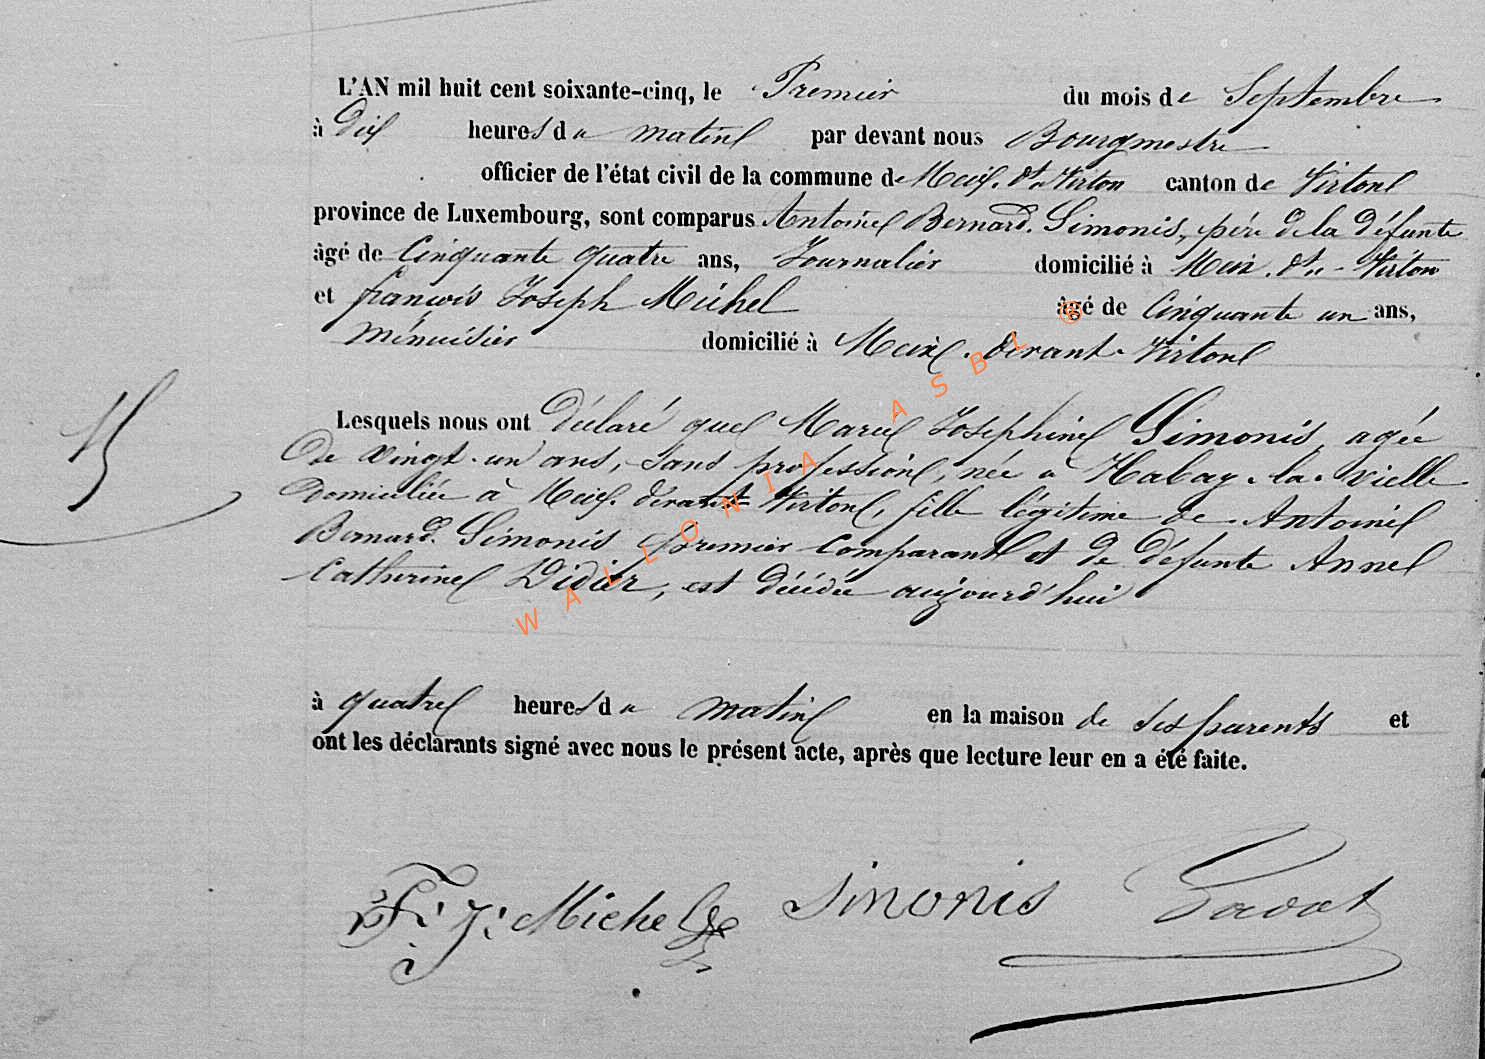 L'AN mil huit cent soixante-cinq, le Premier du mois de Septembre
à dix heures du matin par devant nous Bourgmestre
officier de l'état civil de la commune de Meix-dt-Virton canton de Virton
province de Luxembourg, sont comparus Antoine Bernard Simonis, père de la défunte
âgé de Cinquante quatre ans, Journalier domicilié à Meix-dt-Virton
et françois Joseph Michel âgé de Cinquante un ans,
Ménuisier domicilié à Meix-devant-Virton
Lesquels nous ont déclaré que Marie Joséphine Simonis, agée
De vingt-un ans, sans profession, née à Habay-la-vielle
domiciliée à Meix-devant Virton, fille légitime de Antoine
Bernard Simonis premier Comparant et de défunte Anne
Catherine Didier, est décédée aujourd'hui
à quatre heures du matin en la maison de ses parents et
ont les déclarants signé avec nous le présent acte, après que lecture leur en a été faite.
F. J. Michel Simonis
WALLONIA ASBL ®